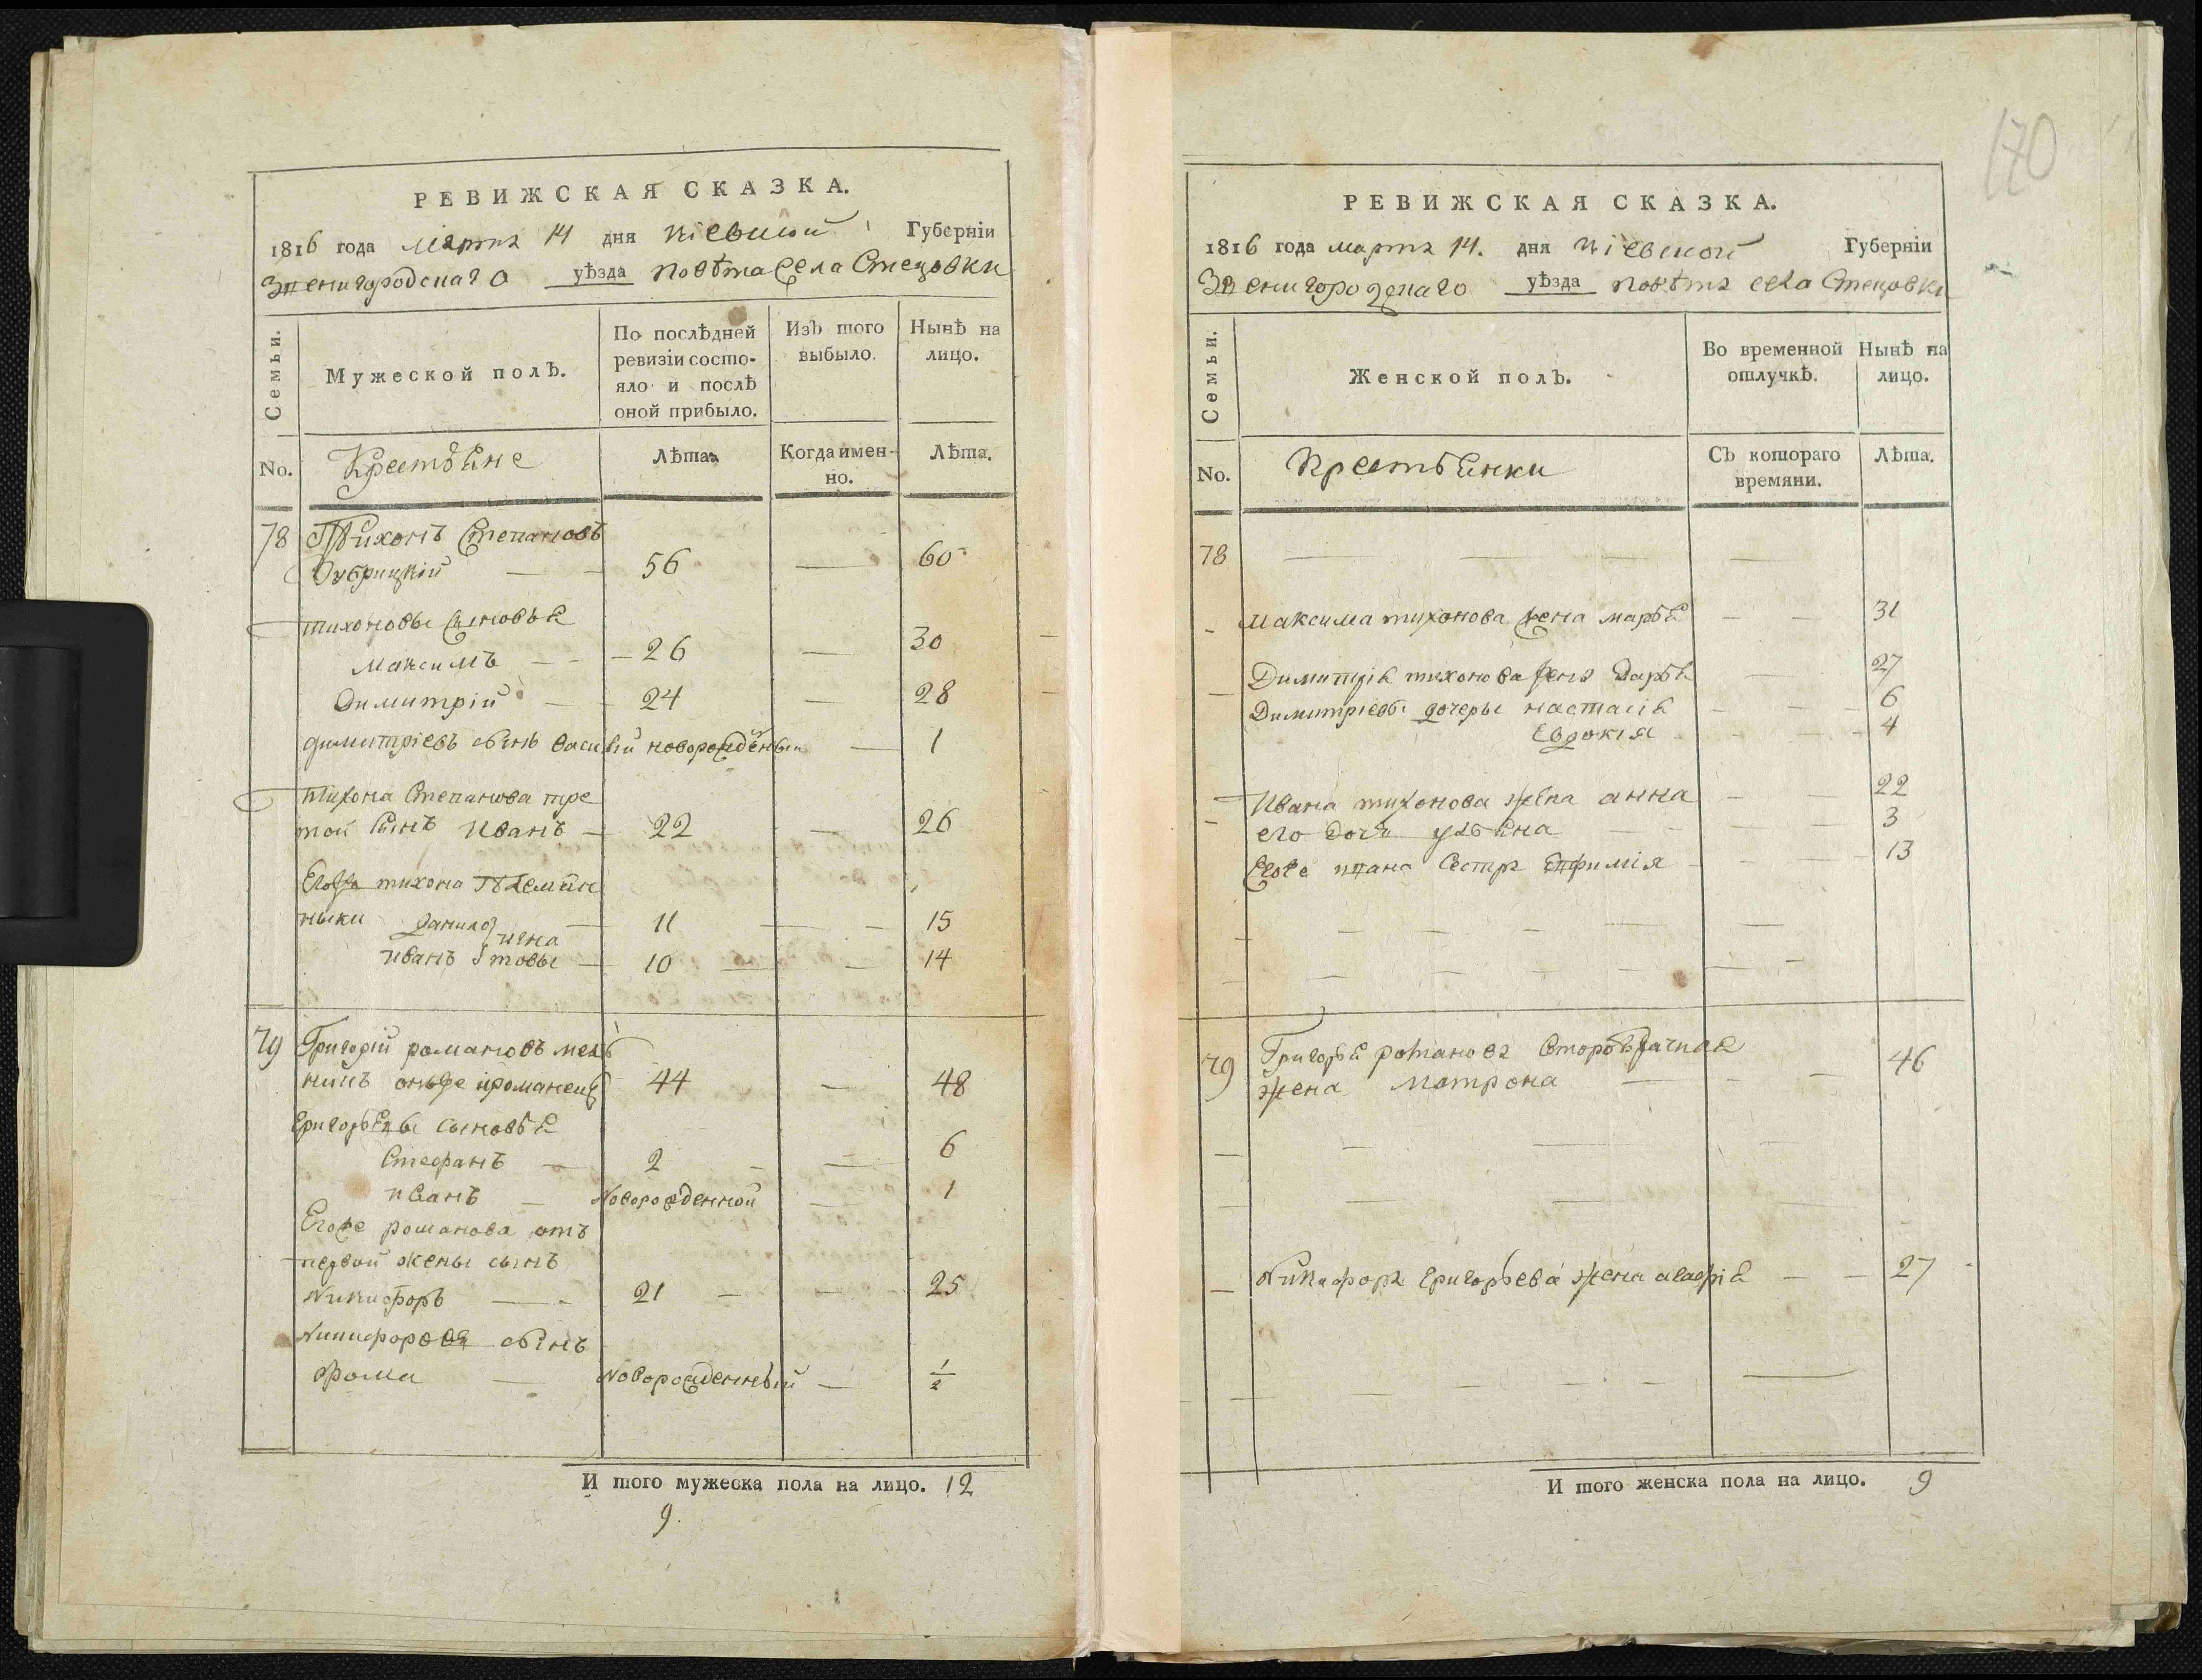 РЕВИЖСКАЯ СКАЗКА.
1816 года марта 14 дня Кіевской Губерніи
Звенигородскаго уѣзда повѣта села Стецовки
Семьи.
Мужеской полЪ.
По послѣдней ревизіи состояло и послѣ оной прибыло.
ИзЪ того выбыло.
НынѢ на лицо.
No.
Крестьяне
Лѣта
Когда имен-
но.
Лѣта.
78 Тихонъ Степановъ
Дубрицкій — 56 — 60
тихоновы сыновья
Максимъ — 26 — 30
Димитрій — 24 — 28
димитріевъ сынъ василій новорожденый — 1
Тихона Степанова тре
той сынъ Иванъ — 22 — 26
Егоже тихона племян
ники Данило — 11 — 15
Иванъ — 10 — 14
79 Григорій романовъ мель
никъ онъже и романецъ 44 — 48
григорьевы сыновья
Стефанъ — 2 — 6
иванъ — Новорожденной — 1
Егоже романова отъ
первой жены сынъ
Никифоръ — 21 — 25
Никифоровъ сынъ
Фома — Новорожденный — 1/2
И того мужеска пола на лицо. 12
9.
170
РЕВИЖСКАЯ СКАЗКА.
1816 года марта 14. дня Кіевской Губерніи
Звенигородскаго уѣзда повѣта села Стецовки
Семьи.
Женской полЪ.
Во временной отлучкѢ.
НынѢ на лицо.
No.
Крестьянки
СЪ котораго
времяни.
Лѣта.
78
Максима тихонова жена марья — 31
Димитрія тихонова жена Дарья — 27
Димитріевы дочеры настасія — 6
Евдокія — 4
Ивана тихонова жена анна — 22
его дочь ульяна — 3
Егоже ивана сестра Евфимія — 13
79 Григорья романова второбрачная
жена Матрона — 46
Никифора григорьева жена агафія — 27
И того женска пола на лицо. 9